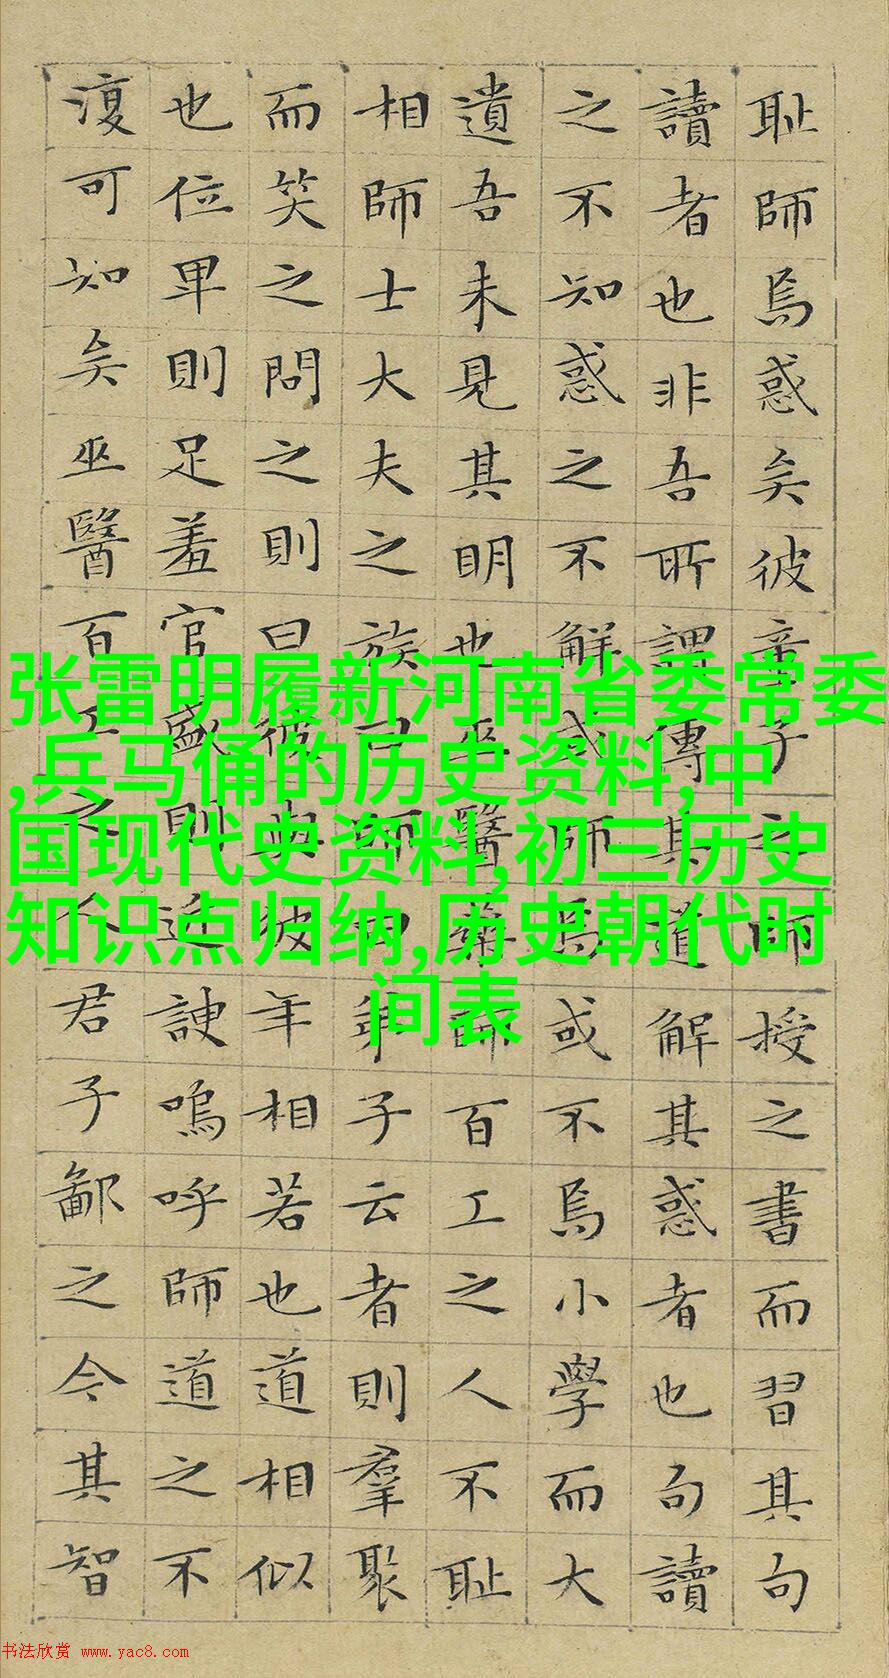 耻師焉惑矣彼童子之師授之書而習其句
讀者也非吾所謂傳其道解其惑者也句讀
之不知惑之不解或師焉或不焉小學而大
遺吾未見其明也巫醫樂師百工之人不耻
相師士大夫之族曰師曰弟子云者則羣聚
而笑之問之則曰彼與彼年相若也道相似
也位卑則足羞官盛則近諛嗚呼師道之不
復可知矣巫醫百工之人君子鄙之今其智
张雷明履新河南省委常委
,兵马俑的历史资料,中
国现代史资料,初三历史
知识点归纳,历史朝代时
间表
书法欣赏 www.yac8.com